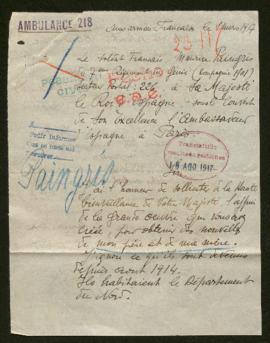 AMBULANCE 218
Aux armées Françaises le 1 mars 1917
Le Soldat Français Maurice Paingris
du 7e Régiment du Génie (Compagnie
Secteur Postal: 226 à Sa Majesté
le Roi d'Espagne sous couvert
de Son Excellence l'Ambassadeur
d'Espagne à Paris.
Pedir informes
Paingris
Transmitido
18 AGO 1917
Sire
J'ai l'honneur de solliciter la Haute
bienveillance de Votre Majesté l'appui
de la grande œuvre que vous avez
créée, pour obtenir des nouvelles
de mon père et de ma mère.
J'ignore ce qu'ils sont devenus
depuis août 1914.
Ils habitaient le Département
du Nord.